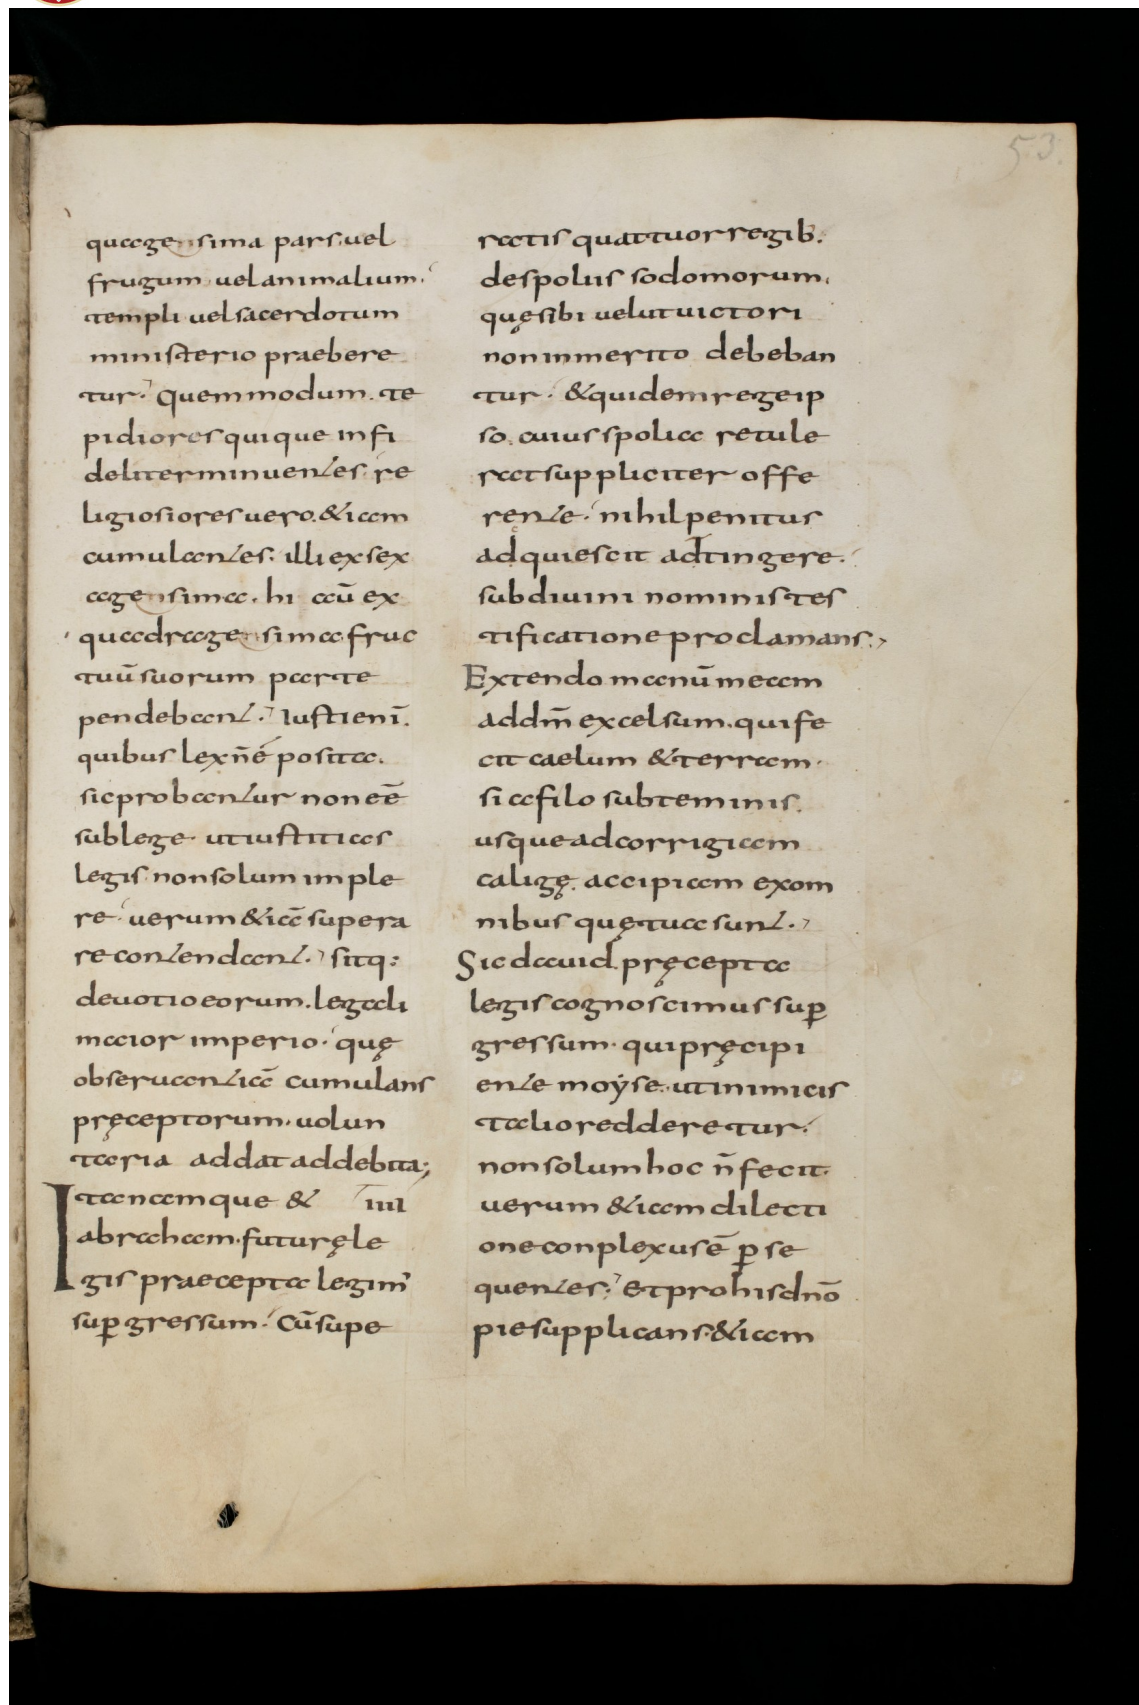 53.
quagensima pars. uel
frugum. uel animalium.
templi uel sacerdotum
ministerio praebere
tur. Quemmodum. te
pidiores quique infi
deliter minuentes. re
ligiosiores uero. &iam
cumulantes. illi ex sex
agensima. hi aū ex
quadragensima fruc
tuū suorum parte
pendebant. Iusti enī.
quibus lex n̄ ē posita.
sic probantur non eē
sub lege. ut iustitias
legis non solum imple
re. uerum &iā supera
re contendant. sitq:
deuotio eorum. legali
maior imperio. quę
obseruantiā cumulans
pręceptorum. uolun
taria addat ad debita;
Itancamque & IIII
abraham. futurę le
gis praecepta legim'
sup̱gressum. Cū supe
ratis quattuor regib.
de spoliis sodomorum.
quę sibi uelut uictori
non inmerito debeban
tur. & quidem rege ip
so. cuius spolia retule
rat suppliciter offe
rente. nihil penitus
adquiescit adtingere.
sub diuini nominis tes
tificatione proclamans.
Extendo manū meam
ad dm̄ excelsum. qui fe
cit caelum & terram.
si a filo subteminis.
usque ad corrigiam
caligę. accipiam ex om
nibus quę tua sunt.
Sic dauid. pręcepta
legis cognoscimus sup̱
gressum. qui pręcipi
ente moyse. ut inimicis
talio redderetur.
non solum hoc n̄ fecit.
uerum &iam dilecti
one conplexus ē p̱se
quentes. Et pro his dnō
pie supplicans. &iam